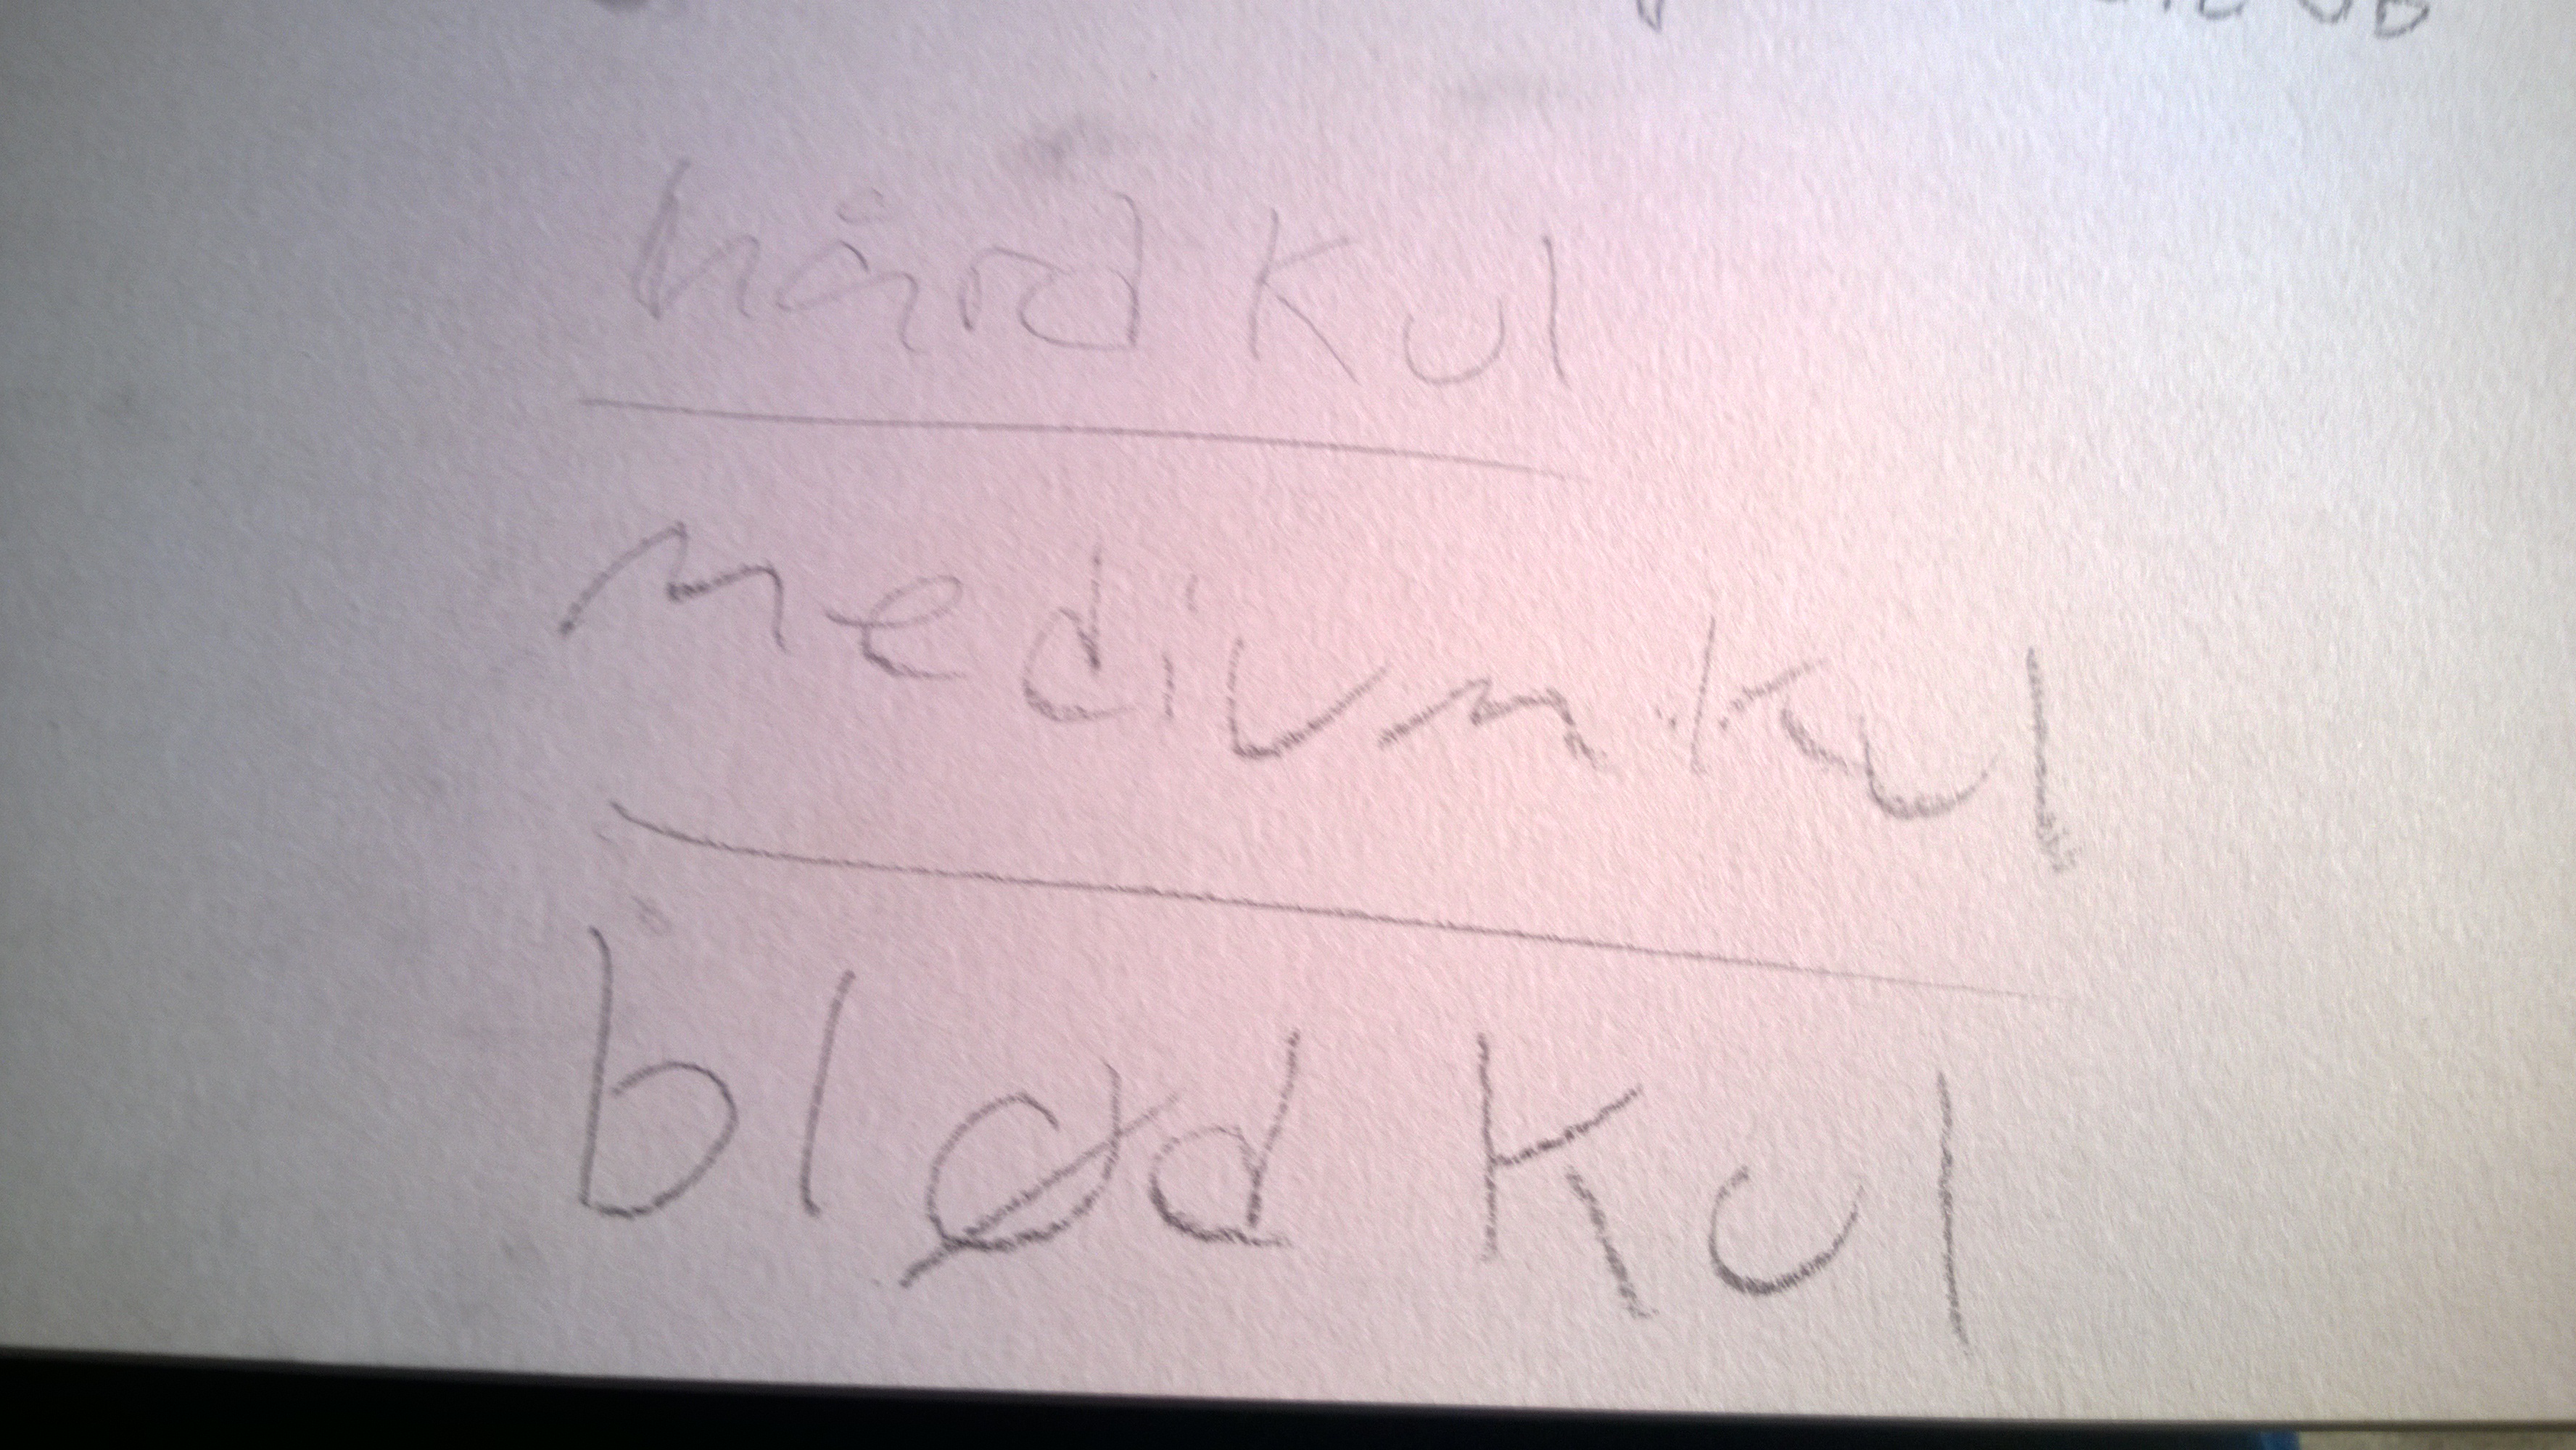 hård kul
medium kul
blød kul